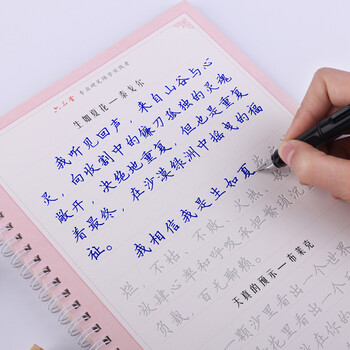 六品堂
生如夏花—泰戈尔
我听见回声，来自山谷与心
灵，向收割中的镰刀孤独的灵魂
敞开，决绝地重复，但也是重复
着最终，在沙漠绿洲中摇曳的福
祉。
我相信我是生如夏
不败、火热
心率和呼吸承担
负载，百无聊赖。
天真的预示—布莱克
一颗沙里看出一个世
里看出一个